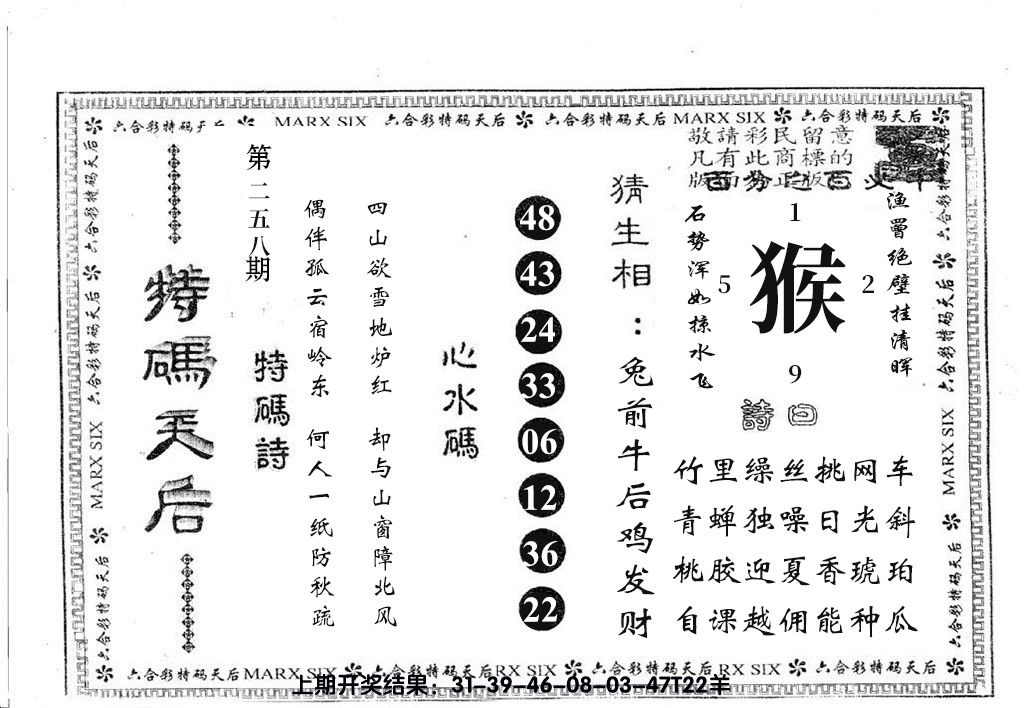 六合彩特码天后 MARX SIX 六合彩特码天后 六合彩特码天后 MARX SIX 六合彩特码天后
敬請彩民留意
凡有此商標的
版面分正版
渔罾绝壁挂清晖
1
5 猴 2
9
石势浑如掠水飞
詩曰
竹里缲丝挑网车
青蝉独噪日光斜
桃胶迎夏香琥珀
自课越佣能种瓜
猜生相：兔前牛后鸡发财
48
43
24
33
06
12
36
22
心水碼
四山欲雪地炉红 却与山窗障北风
偶伴孤云宿岭东 何人一纸防秋疏
第二五八期
特碼詩
特碼天后
六合彩特码天后 六合彩特码天后 MARX SIX 六合彩特码天后
六合彩特码天后 六合彩特码天后 MARX SIX 六合彩特码天后
六合彩特码天后 MARX SIX 六合彩特码天后 RX SIX 六合彩特码天后 RX SIX 六合彩特码天后
上期开奖结果：31-39-46-08-03-47T22羊